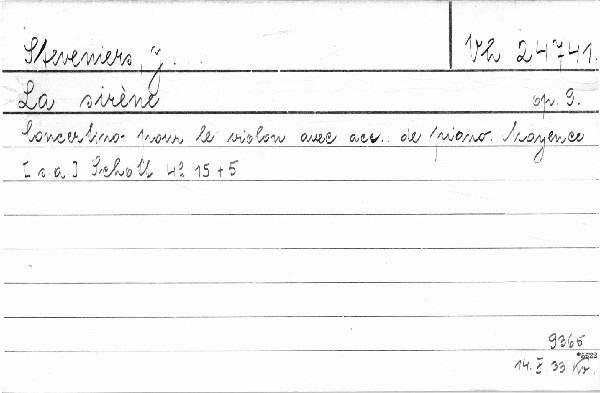 Steveniers, J.
Vh 24741.
La sirène
op. 9.
Concertino pour le violon avec acc. de piano. Mayence
[s.a.] Schott 4º 15 + 5
9365
14. X 33